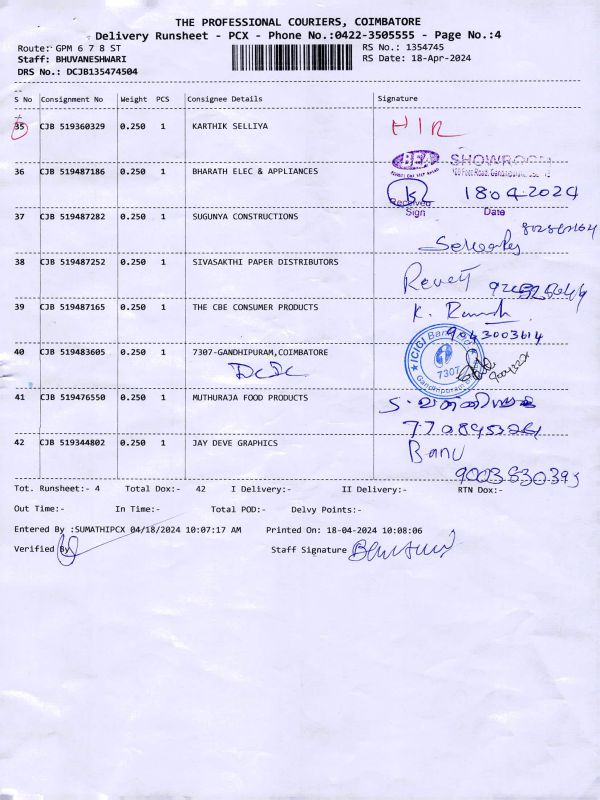 THE PROFESSIONAL COURIERS, COIMBATORE
Delivery Runsheet - PCX - Phone No.:0422-3505555 - Page No.:4
Route: GPM 6 7 8 ST RS No.: 1354745
Staff: BHUVANESHWARI RS Date: 18-Apr-2024
DRS No.: DCJB135474504
S No Consignment No Weight PCS Consignee Details Signature
35 CJB 519360329 0.250 1 KARTHIK SELLIYA
BEA SHOWROOM
36 CJB 519487186 0.250 1 BHARATH ELEC & APPLIANCES 100 Feet Road,
Received 18 04 2024
Sign Date
37 CJB 519487282 0.250 1 SUGUNYA CONSTRUCTIONS
38 CJB 519487252 0.250 1 SIVASAKTHI PAPER DISTRIBUTORS
39 CJB 519487165 0.250 1 THE CBE CONSUMER PRODUCTS K.
9043003614
40 CJB 519483605 0.250 1 7307-GANDHIPURAM,COIMBATORE
ICICI Bank
7307
41 CJB 519476550 0.250 1 MUTHURAJA FOOD PRODUCTS
42 CJB 519344802 0.250 1 JAY DEVE GRAPHICS Banu
Tot. Runsheet:- 4 Total Dox:- 42 I Delivery:- II Delivery:- RTN Dox:-
Out Time:- In Time:- Total POD:- Delvy Points:-
Entered By :SUMATHIPCX 04/18/2024 10:07:17 AM Printed On: 18-04-2024 10:08:06
Verified By Staff Signature